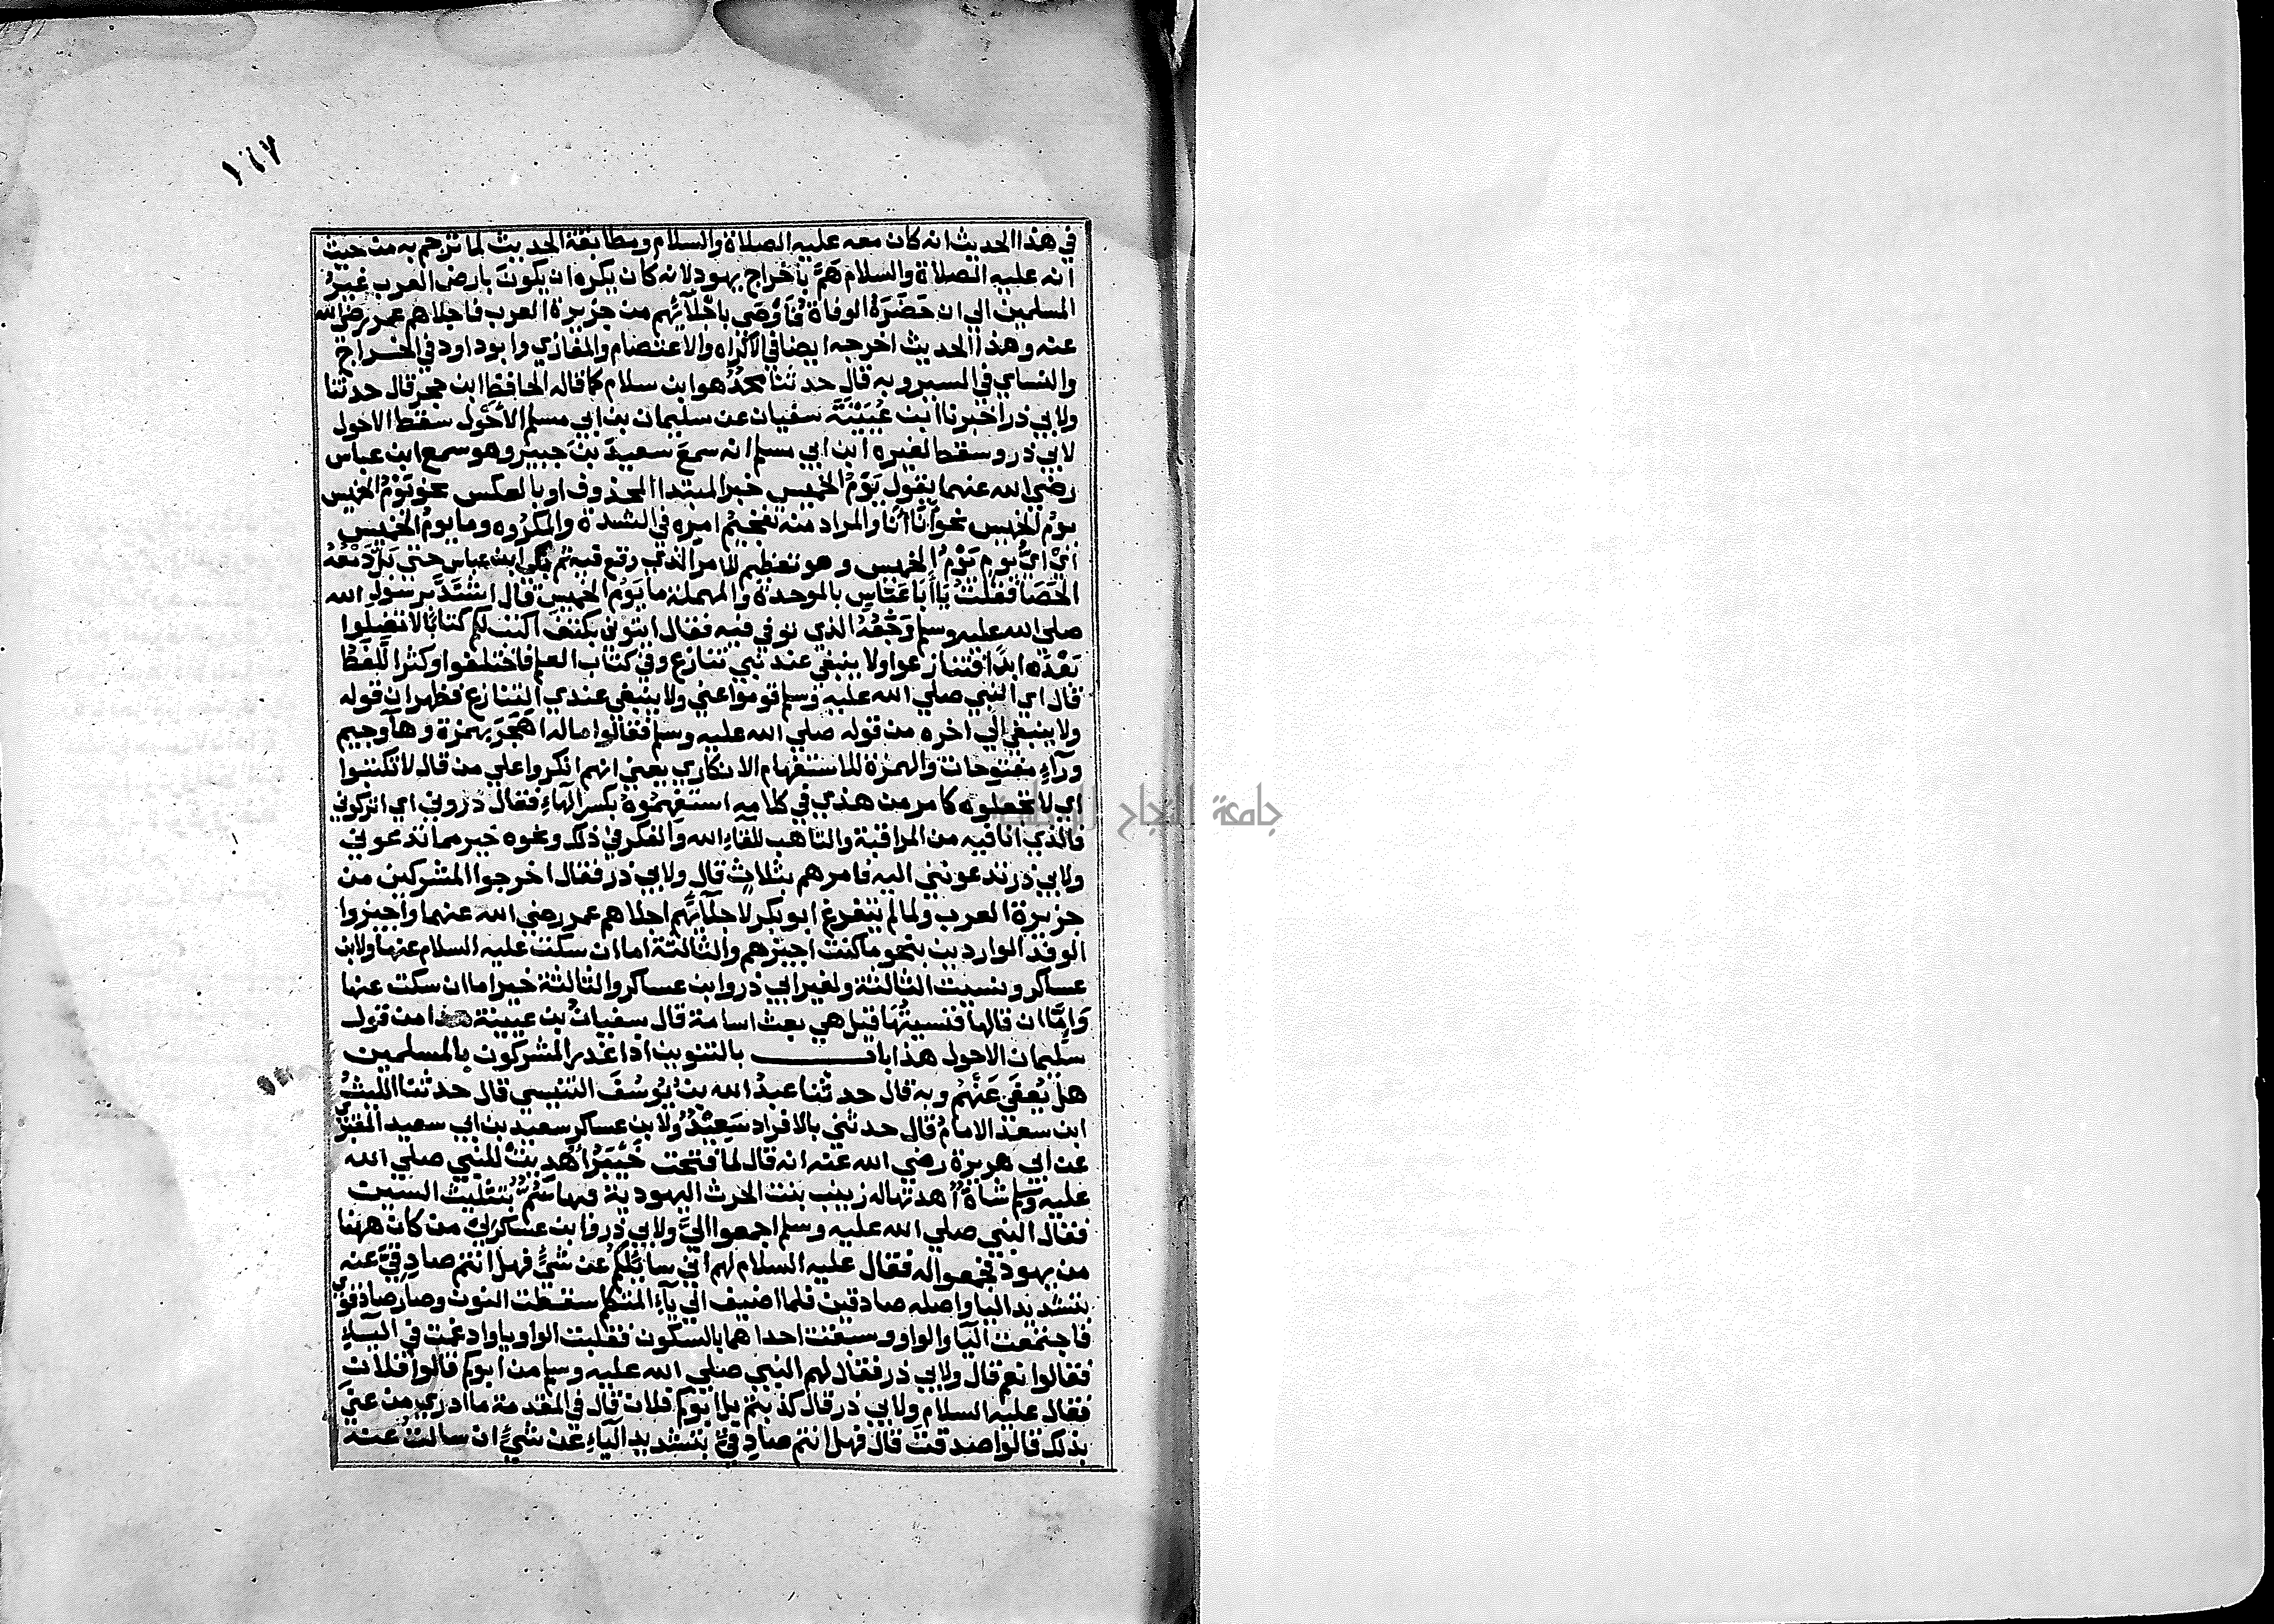 في هذا الحديث انه كان معه عليه الصلاة والسلام ومطابقة الحديث لما ترجم به من حيث
انه عليه الصلاة والسلام هَمَّ باخراج يهود لانه كان يكره ان يكون بارض العرب غيرُ
المسلمين الي ان حَضَرَهُ الوفاة فَاَوْصَي باجْلآئِهم من جزيرة العرب فاجلاهم عمر رضي الله
عنه وهذا الحديث اخرجه ايضا في الاكراه والاعتصام والمغازي وابو داود في الخراج
والنساي في السير وبه قال حدثنا محمدٌ هو ابن سلام كما قاله الحافظ ابن حجر قال حدثنا
ولابي ذر اخبرنا ابن عُيَيْنَةَ سفيان عن سليمان بن ابي مسلم الاَحْوَل سقط الاحول
لابي ذر وسقط لغيره ابن ابي مسلم انه سمعَ سعيدَ بنَ جبير وهو سمع ابن عباس
رضي الله عنهما يقول يَوْمُ الخميس خبر المبتدا المحذوف او بالعكس نحو يَوْمُ الخميس
يومُ الخميس نحو اَنَا اَنَا والمراد منه تفخيم امره في الشدة والمكرُوه وما يومُ الخميس
اَيْ ايُّ يوم يَوْمُ الخميس وهو تعظيم للامر الذي وقع فيه ثم بَكَي ابن عباس حتي بَلَّ دَمْعُهُ
الحَصَا فقلتُ يا اَبا عَبَّاسٍ بالموحدة والمهملة ما يَوْمُ الخميس قال اشْتَدَّ برسول الله
صلي الله عليه وسلم وَجَعُهُ الذي توفي فيه فقال ايتوني بكتف اكتب لكم كتابًا لا تضلّوا
بَعْدَه ابدًا فتنازعوا ولا ينبغي عند نبي تنازع وفي كتاب العلم فاختلفوا وكثر اللَّغَطُ
قال اي النبي صلي الله عليه وسلم قوموا عني ولا ينبغي عندي التنازع فظهر ان قوله
ولا ينبغي الي اخره من قوله صلي الله عليه وسلم فقالوا ماله اَهَجَرَ بهمزة وهآ وجيم
ورآءٍ مفتوحات والهمزة للاستفهام الانكاري يعني انهم انكروا علي من قال لا تكتبوا
اي لا تجعلوه كامر من هذي في كلامه استفهِمُوهُ بكسر الهآءِ فقال ذروني اي اتركوني
فالذي انا فيه من المراقبة والتاهب للقاءِ الله والفكر في ذلك ونحوه خير مما تدعوني
ولابي ذر تدعونني اليه فامرهم بثلاثٍ قال ولابي ذر فقال اخرجوا المشركين من
جزيرة العرب ولما لم يتفرغ ابو بكر لاجلآئهم اجلاهم عمر رضي الله عنهما واجيزوا
الوفد الواردين بنحو ما كنت اجيزهم والثالثة اما ان سكت عليه السلام عنها ولابن
عساكر ونسيت الثالثة ولغير ابي ذر وابن عساكر والثالثة خير اما ان سكت عنها
وَاِمَّا ان قالها فنسيتُهَا قيل هي بعث اسامة قال سفيانُ بن عيينة هذا من قول
سليمان الاحول هذا باب بالتنوين اذا غدر المشركون بالمسلمين
هل يُعفَي عَنْهُم وبه قال حدثنا عبدُ الله بنُ يُوسُفَ التنيسي قال حدثنا الليثُ
ابن سعد الامامُ قال حدثني بالافراد سَعِيْدٌ ولابن عساكر سعيد بن ابي سعيد المقبري
عن ابي هريرة رضي الله عنه انه قال لما فتحت خَيْبَرُ اُهْدِيَتْ للنبي صلي الله
عليه وسلم شاةٌ اهدتها له زينب بنت الحرث اليهودية فيها سُمٌّ بتثليث السين
فقال النبي صلي الله عليه وسلم اجمعوا اليَّ ولابي ذر وابن عساكر لي من كان ههنا
من يهود فجمعوا له فقال عليه السلام لهم اني سايلكم عن شيٍ فهل انتم صادِقِيَّ عنه
بتشديد اليا واصله صادقين فلما اضيف الي يآءِ المتكلم سقطت النون وصار صادقوي
فاجتمعت اليآ والواو وسبقت احداهما بالسكون فقلبت الواو يا وادغمت في اليا
فقالوا نعم قال ولابي ذر فقال لهم النبي صلي الله عليه وسلم من ابوكم قالوا فلان
فقال عليه السلام ولابي ذر قال كذبتم بل ابوكم فلان قال في المقدمة ما ادري من عني
بذلك قالوا صدقت قال فهل انتم صادِقيَّ بتشديد اليآءِ عن شيٍ ان سالت عنه
جامعة النجاح الوطنية